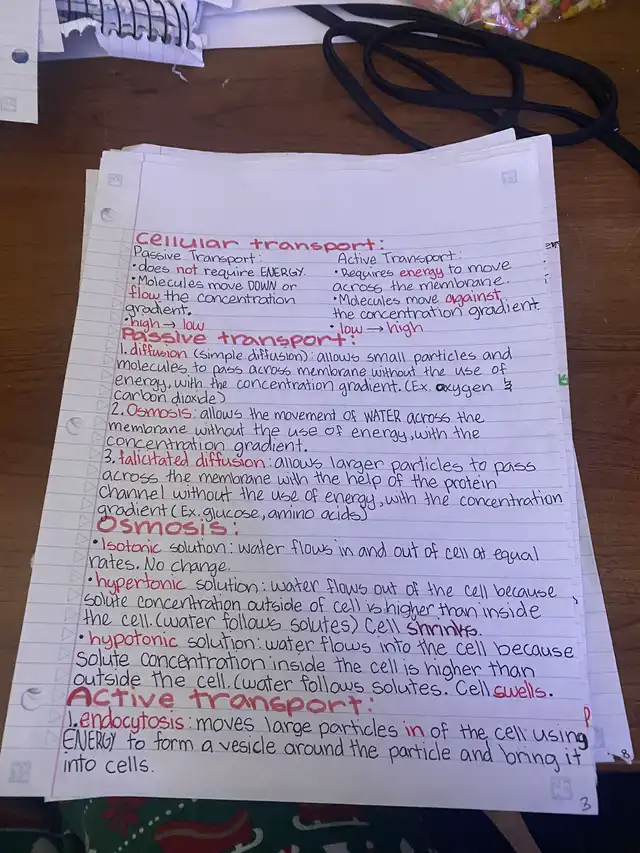 Cellular transport:
Passive Transport:
• does not require ENERGY.
• Molecules move DOWN or
flow the concentration
gradient.
• high → low
Active Transport:
• Requires energy to move
across the membrane.
• Molecules move against
the concentration gradient.
• low → high
Passive transport:
1. diffusion (simple diffusion): allows small particles and
molecules to pass across membrane without the use of
energy, with the concentration gradient. (Ex. oxygen &
carbon dioxide)
2. Osmosis: allows the movement of WATER across the
membrane without the use of energy, with the
concentration gradient.
3. falicitated diffusion: allows larger particles to pass
across the membrane with the help of the protein
channel without the use of energy, with the concentration
gradient (Ex. glucose, amino acids)
Osmosis:
• Isotonic solution: water flows in and out of cell at equal
rates. No change.
• hypertonic solution: water flows out of the cell because
solute concentration outside of cell is higher than inside
the cell. (water follows solutes) Cell shrinks.
• hypotonic solution: water flows into the cell because
solute concentration inside the cell is higher than
outside the cell. (water follows solutes. Cell swells.
Active transport:
1. endocytosis: moves large particles in of the cell using
ENERGY to form a vesicle around the particle and bring it
into cells.
3